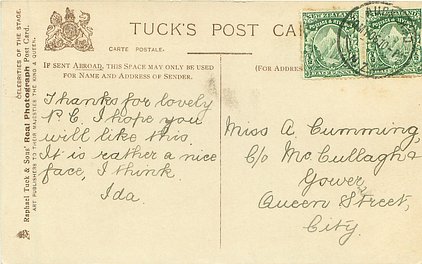 TUCK'S POST CARD
CARTE POSTALE.
IF SENT ABROAD, THIS SPACE MAY ONLY BE USED
FOR NAME AND ADDRESS OF SENDER.
(FOR ADDRESS
CELEBRITIES OF THE STAGE.
Raphael Tuck & Sons' Real Photograph Post Card.
ART PUBLISHERS TO THEIR MAJESTIES THE KING & QUEEN.
Thanks for lovely
P.C. I hope you
will like this.
It is rather a nice
face, I think.
Ida.
Miss A. Cumming,
C/o McCullagh &
Gower
Queen Street,
City.